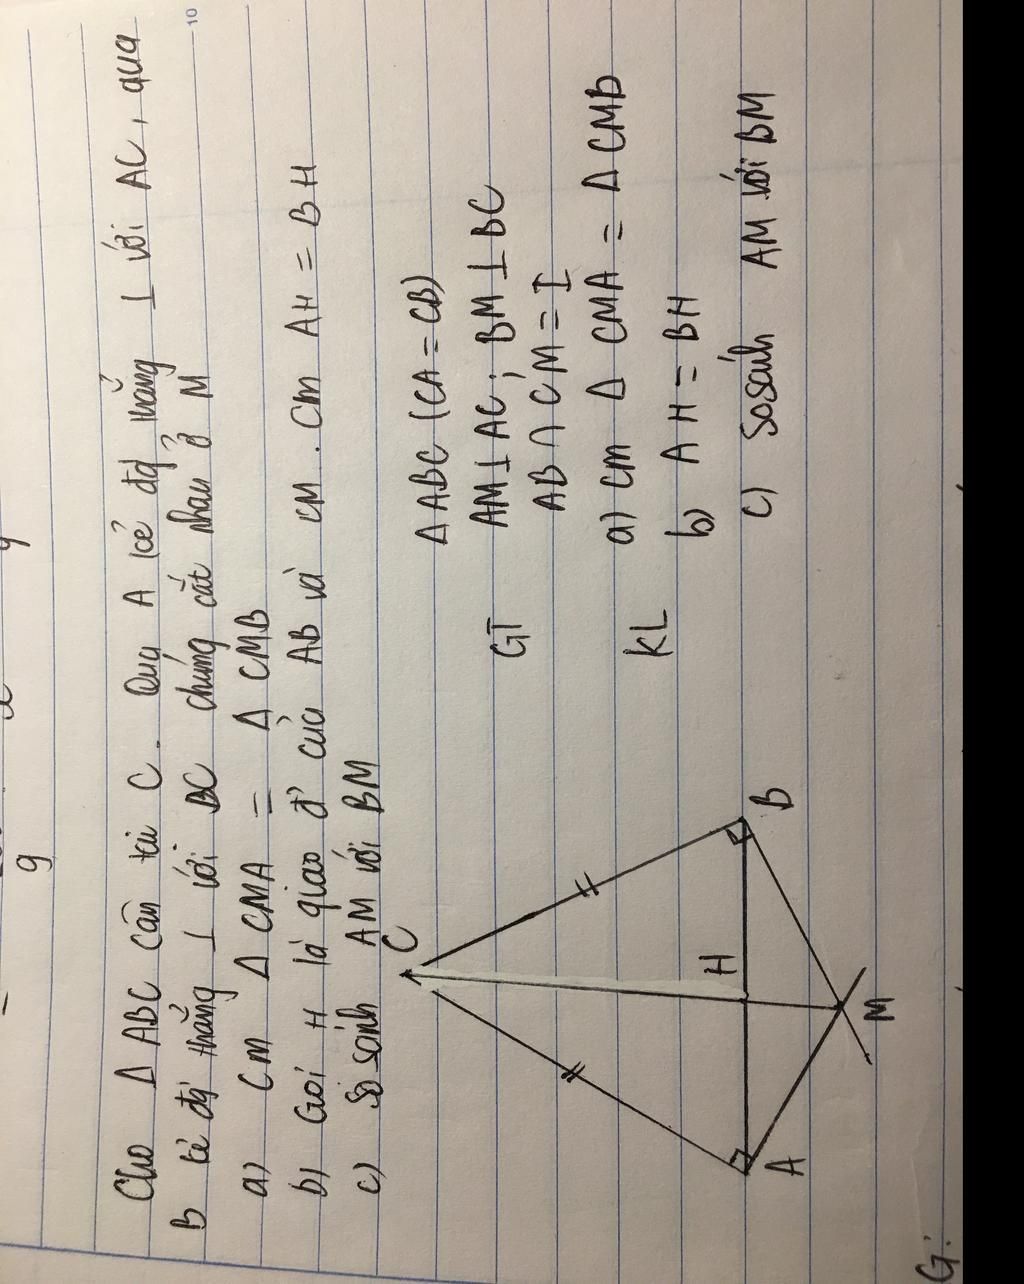 g
10
Cho Δ ABC cân tại C. Qua A kẻ đg' thẳng ⊥ với AC, qua
B kẻ đg' thẳng ⊥ với BC chúng cắt nhau ở M
a) CM Δ CMA = Δ CMB
b) Gọi H là giao đ' của AB và CM. Cm AH = BH
c) So sánh AM với BM
Δ ABC (CA = CB)
GT AM ⊥ AC; BM ⊥ BC
AB ∩ CM = I
a) CM Δ CMA = Δ CMB
KL
b) AH = BH
c) So sánh AM với BM
C
H
A
B
M
G: